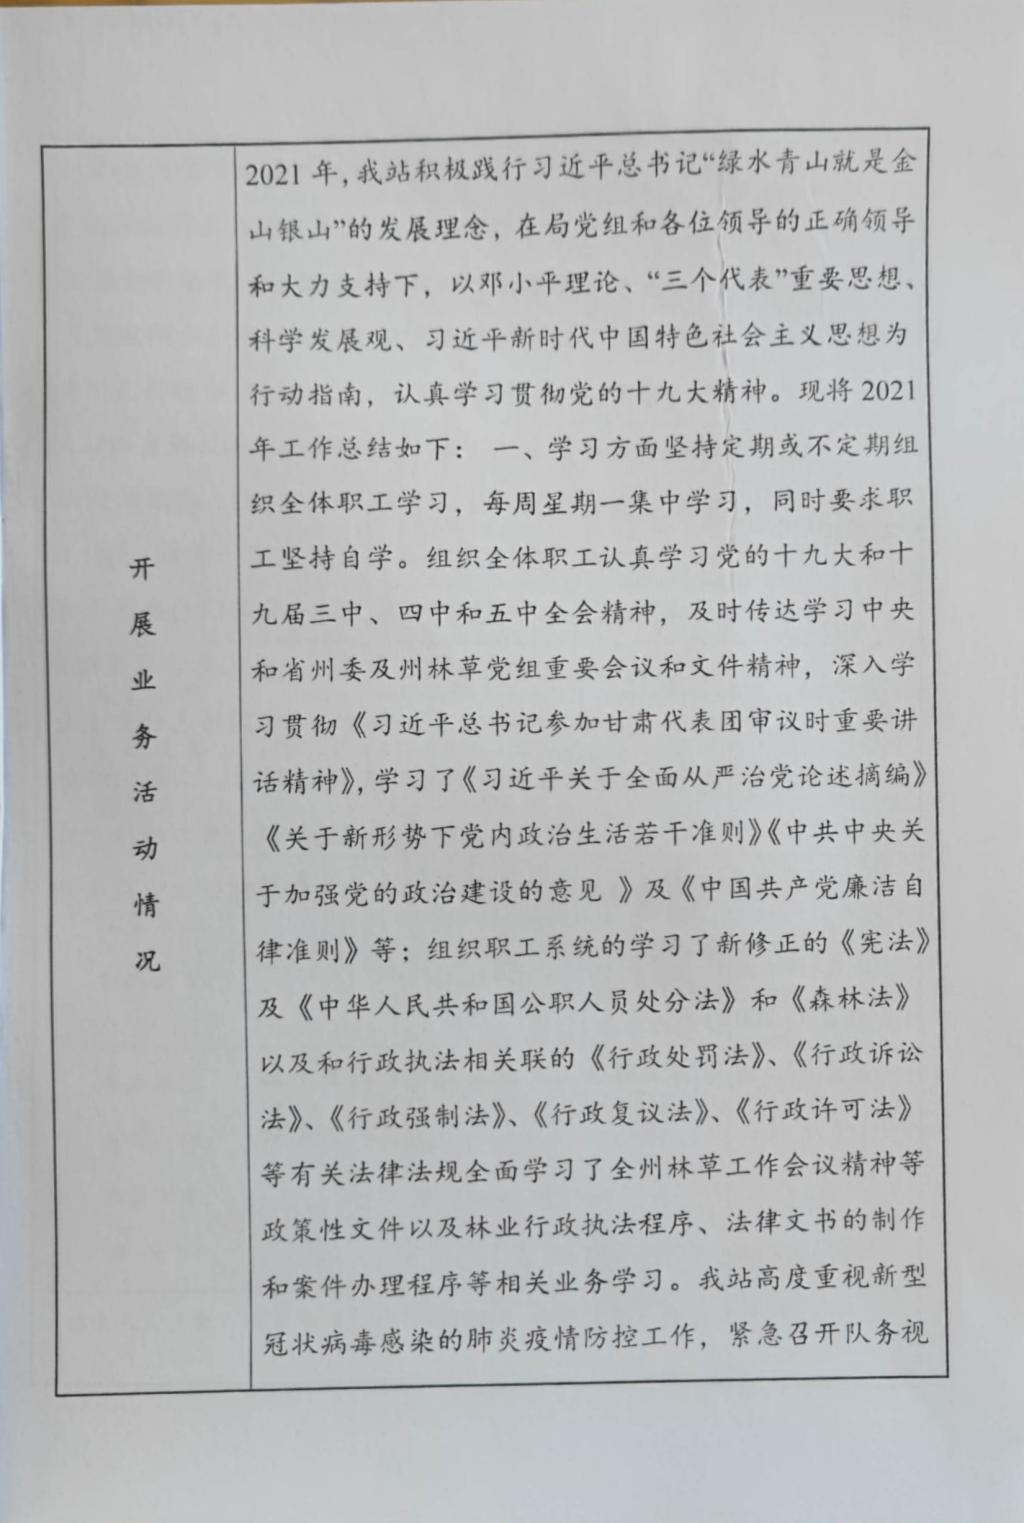 开
展
业
务
活
动
情
况
2021 年，我站积极践行习近平总书记“绿水青山就是金
山银山”的发展理念，在局党组和各位领导的正确领导
和大力支持下，以邓小平理论、“三个代表”重要思想、
科学发展观、习近平新时代中国特色社会主义思想为
行动指南，认真学习贯彻党的十九大精神。现将 2021
年工作总结如下： 一、学习方面坚持定期或不定期组
织全体职工学习，每周星期一集中学习，同时要求职
工坚持自学。组织全体职工认真学习党的十九大和十
九届三中、四中和五中全会精神，及时传达学习中央
和省州委及州林草党组重要会议和文件精神，深入学
习贯彻《习近平总书记参加甘肃代表团审议时重要讲
话精神》，学习了《习近平关于全面从严治党论述摘编》
《关于新形势下党内政治生活若干准则》《中共中央关
于加强党的政治建设的意见 》及《中国共产党廉洁自
律准则》等；组织职工系统的学习了新修正的《宪法》
及《中华人民共和国公职人员处分法》和《森林法》
以及和行政执法相关联的《行政处罚法》、《行政诉讼
法》、《行政强制法》、《行政复议法》、《行政许可法》
等有关法律法规全面学习了全州林草工作会议精神等
政策性文件以及林业行政执法程序、法律文书的制作
和案件办理程序等相关业务学习。我站高度重视新型
冠状病毒感染的肺炎疫情防控工作，紧急召开队务视